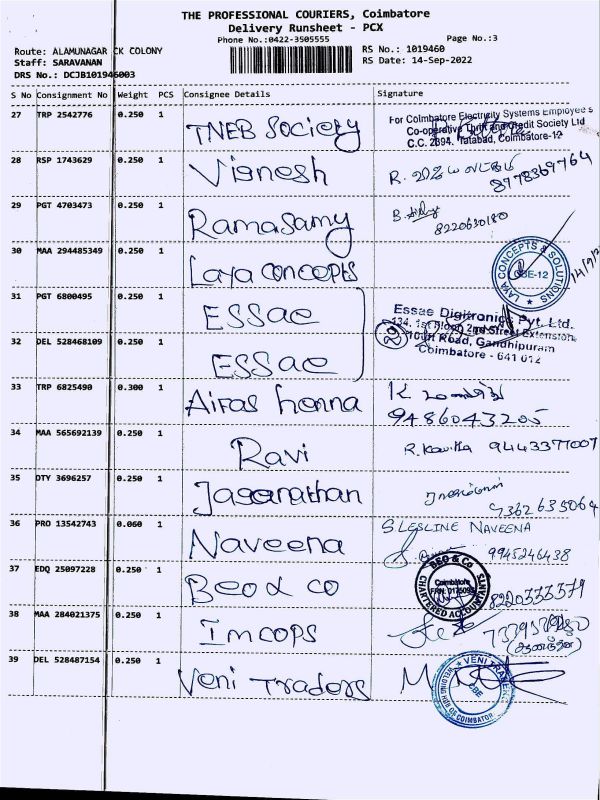 THE PROFESSIONAL COURIERS, Coimbatore
Delivery Runsheet - PCX
Phone No.:0422-3505555 Page No.:3
Route: ALAMUNAGAR CK COLONY RS No.: 1019460
Staff: SARAVANAN RS Date: 14-Sep-2022
DRS No.: DCJB101946003
S No Consignment No Weight PCS Consignee Details Signature
27 TRP 2542776 0.250 1 TNEB Society For Coimbatore Electricity Systems Employee's
Co-operative Thrift and Credit Society Ltd
C.C. 2394, Tatabad, Coimbatore-12
28 RSP 1743629 0.250 1 Vignesh R. விஜயலட்சுமி
8778369764
29 PGT 4703473 0.250 1 Ramasamy
8220630180
30 MAA 294485349 0.250 1 Laya concepts LAYA CONCEPTS & SOLUTIONS
CBE-12
31 PGT 6800495 0.250 1 ESSae Essae Digitronics Pvt. Ltd.
134, 1st Floor, 2nd Street Extension,
100ft Road, Gandhipuram
Coimbatore - 641 012
32 DEL 528468109 0.250 1 ESSae
33 TRP 6825490 0.300 1 Airas henna K
9486043205
34 MAA 565692139 0.250 1 Ravi R. Kavitha 9443377007
35 DTY 3696257 0.250 1 Jaganathan
7362635064
36 PRO 13542743 0.060 1 Naveena S LESLINE NAVEENA
9945246438
37 EDQ 25097228 0.250 1 Beo & co BEO & Co
Coimbatore
CHARTERED ACCOUNTANTS
8220333579
38 MAA 284021375 0.250 1 Imcops
39 DEL 528487154 0.250 1 Veni Traders VENI TRADERS
CBE
COIMBATOR